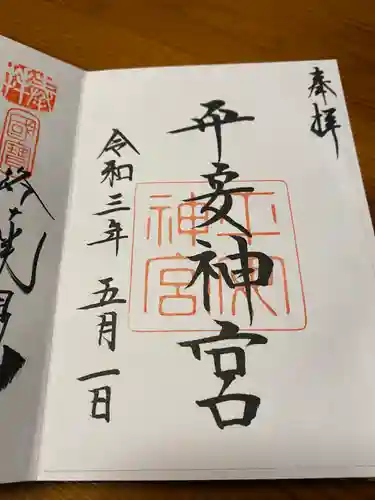 奉拝
平安神宮
平安神宮
令和三年五月一日
國寶